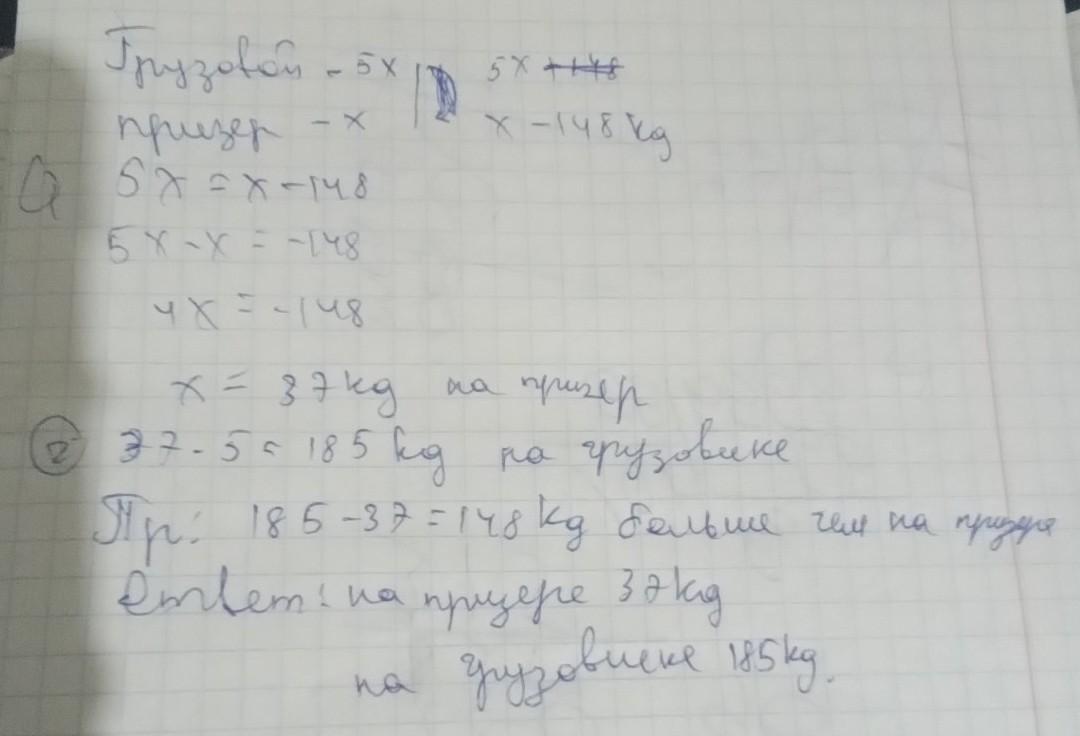 Грузовой - 5x | 5x +148
призер - x | x - 148 kg
① 5x = x - 148
5x - x = -148
4x = -148
x = 37 kg на призер
② 37 - 5 = 185 kg на грузовике
Пр: 185 - 37 = 148 kg больше чем на призере
Ответ: на призере 37 kg
на грузовике 185 kg.